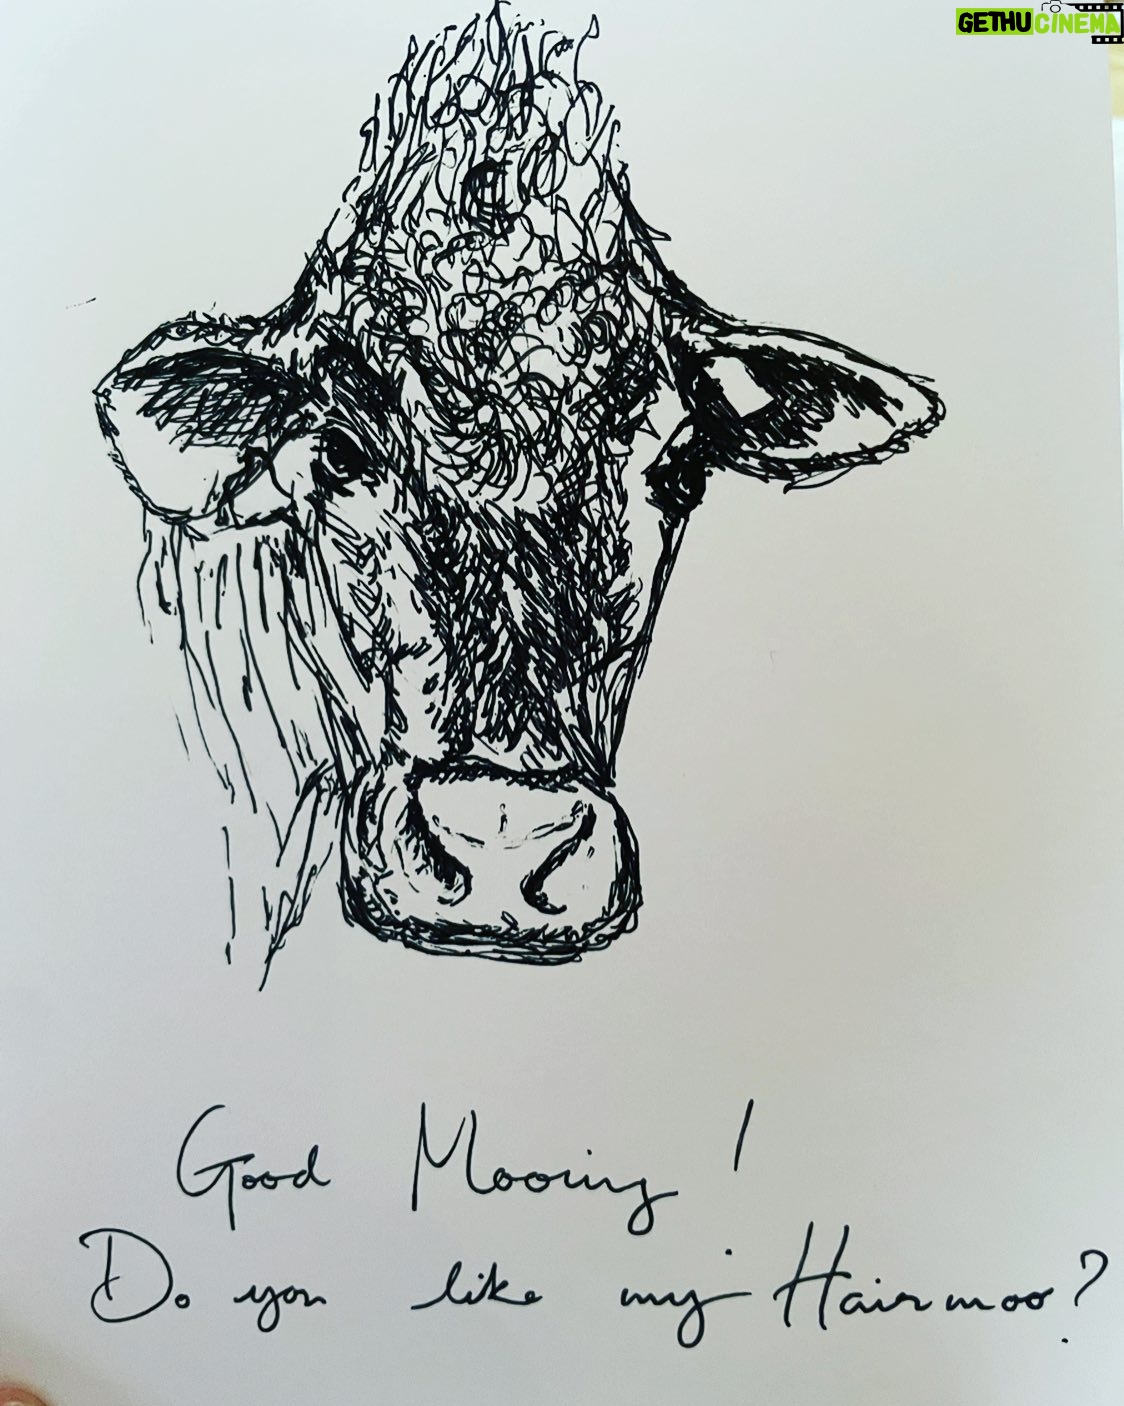 GETHUCINEMA
Good Mooing!
Do you like my Hairmoo?